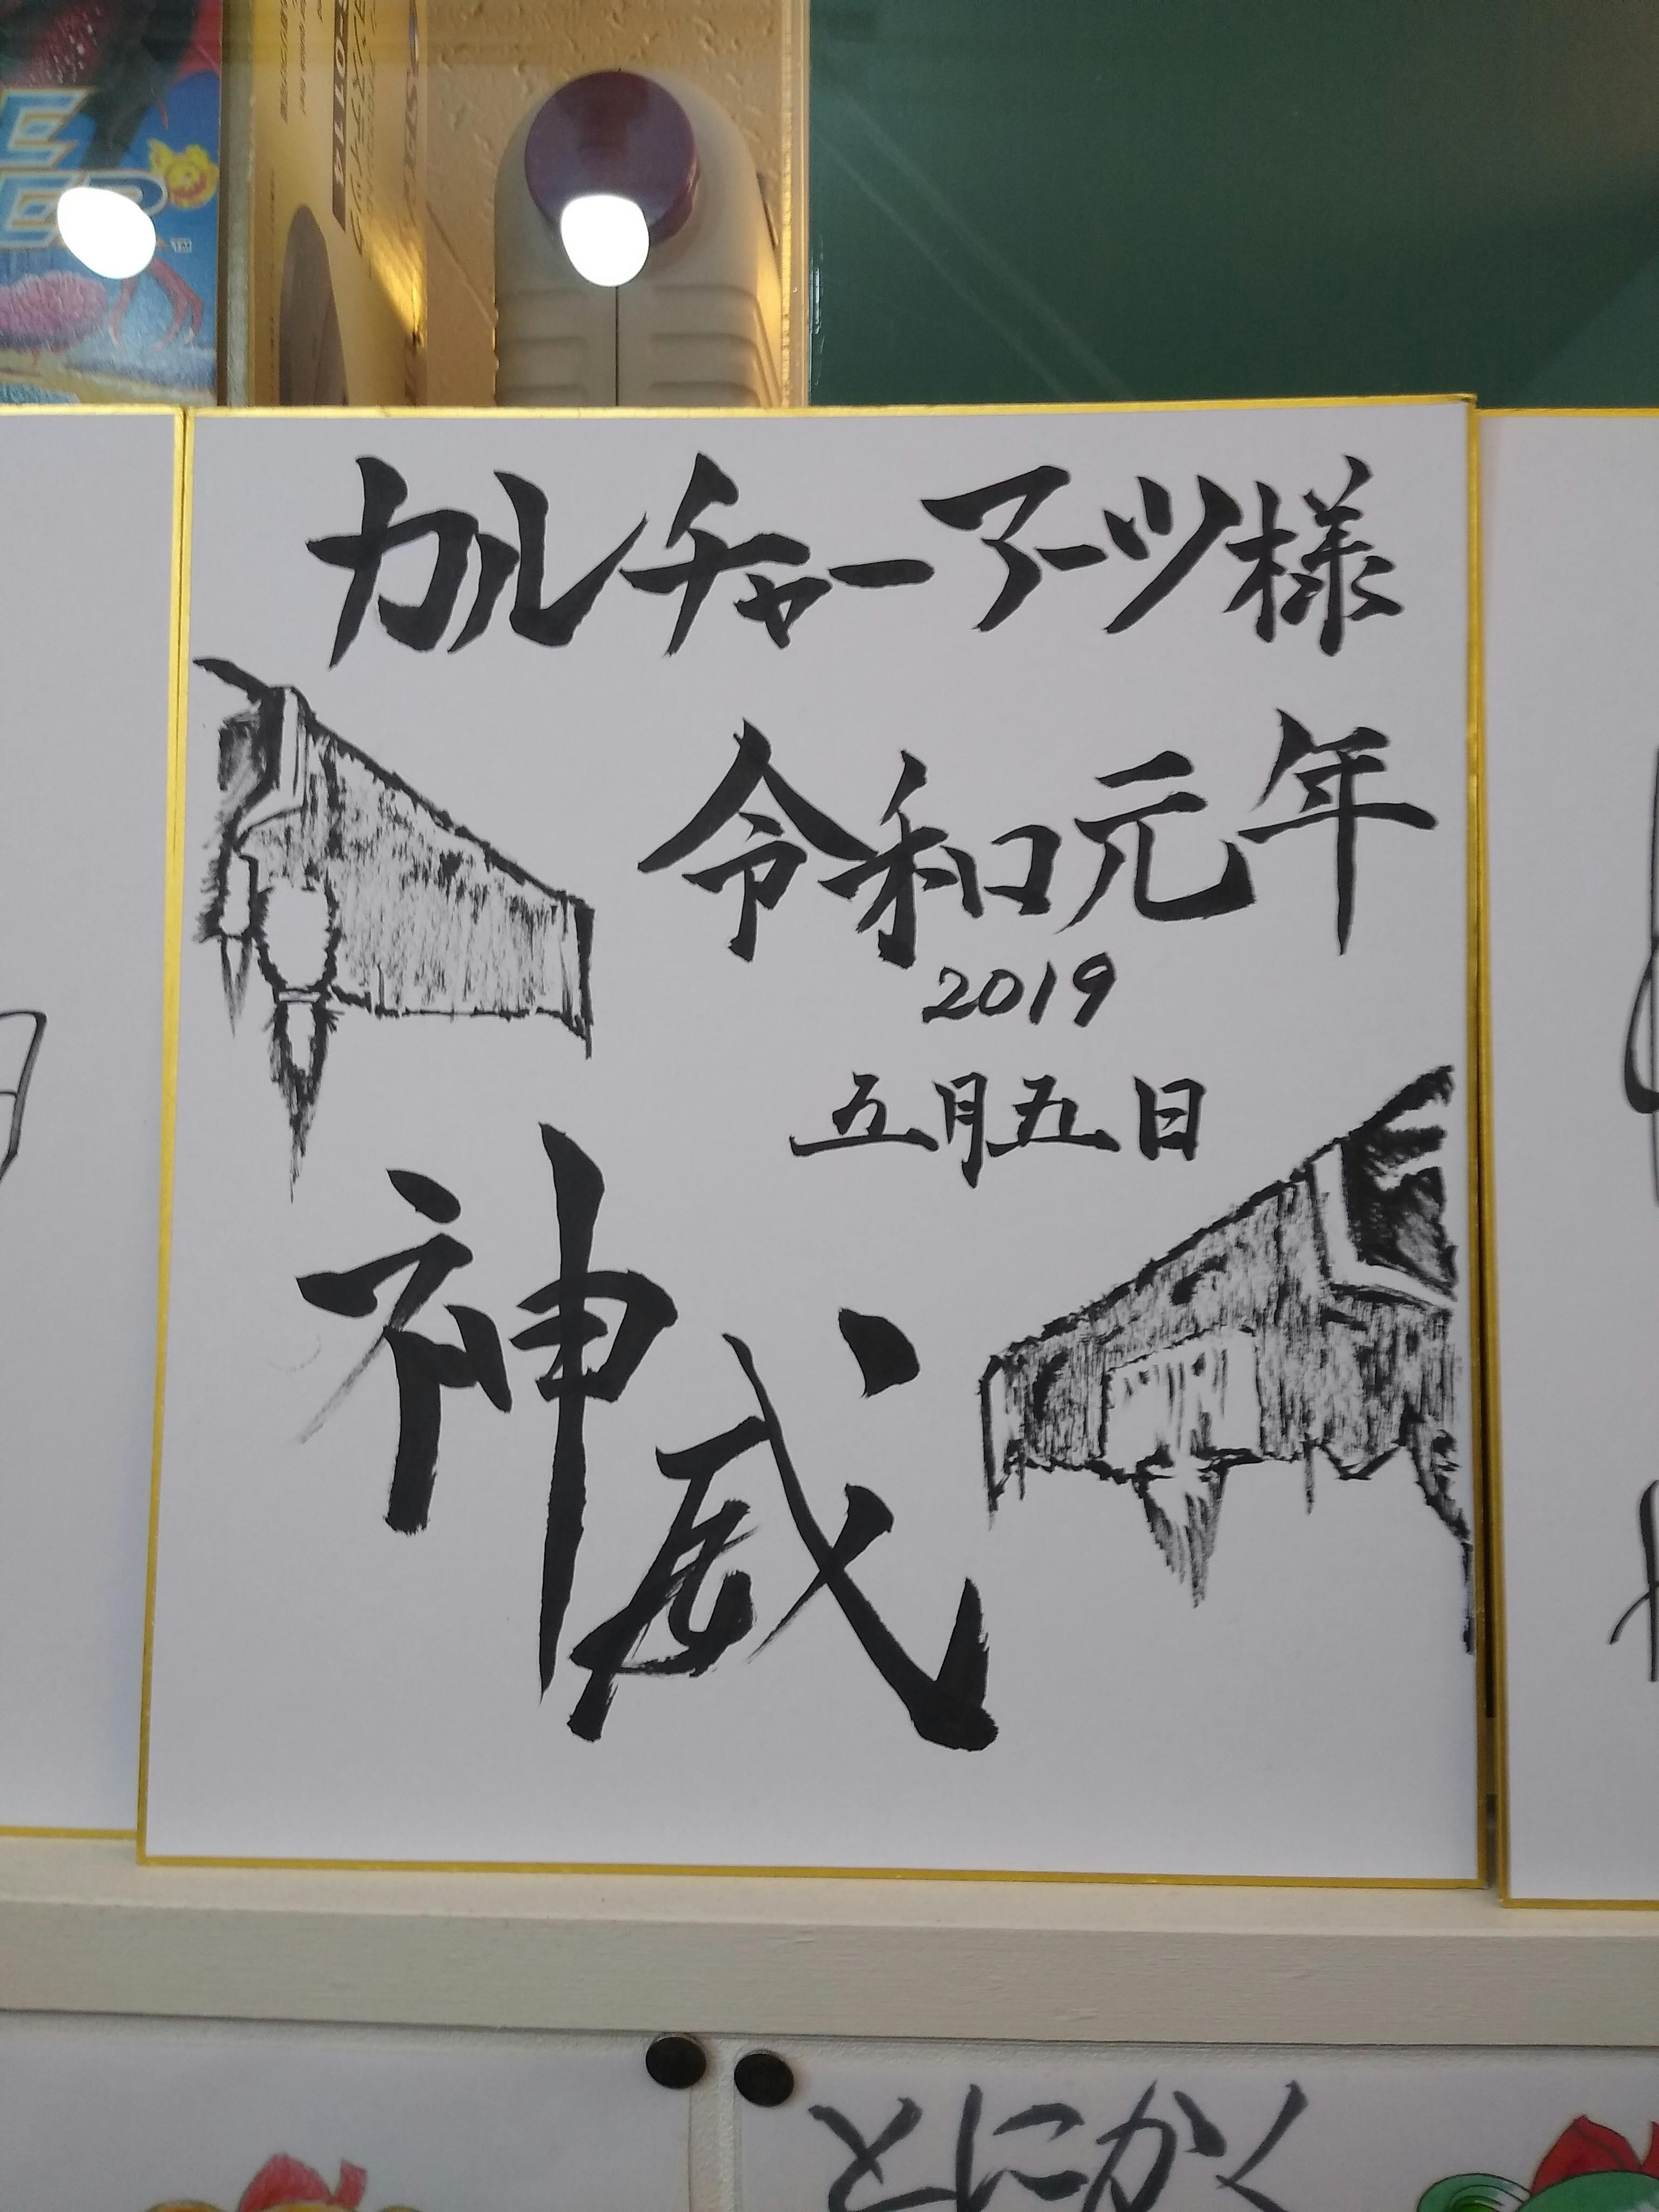 カルチャーアーツ様
令和元年
2019
五月五日
神威
とにかく